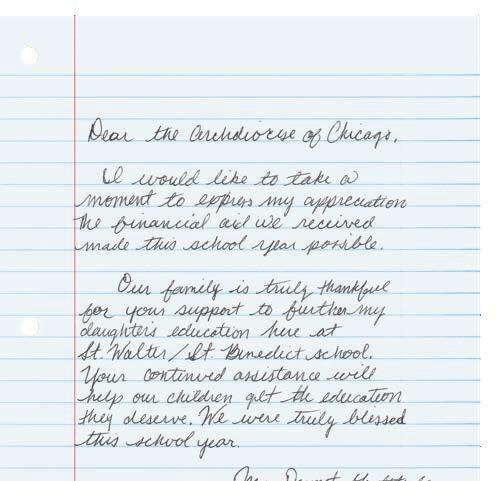 Dear the Archdiocise of Chicago,
I would like to take a
moment to express my appreciation
the financial aid we received
made this school year possible.
Our family is truly thankful
for your support to further my
daughter's education here at
St. Walter/St. Benedict school.
Your continued assistance will
help our children get the education
they deserve. We were truly blessed
this school year.